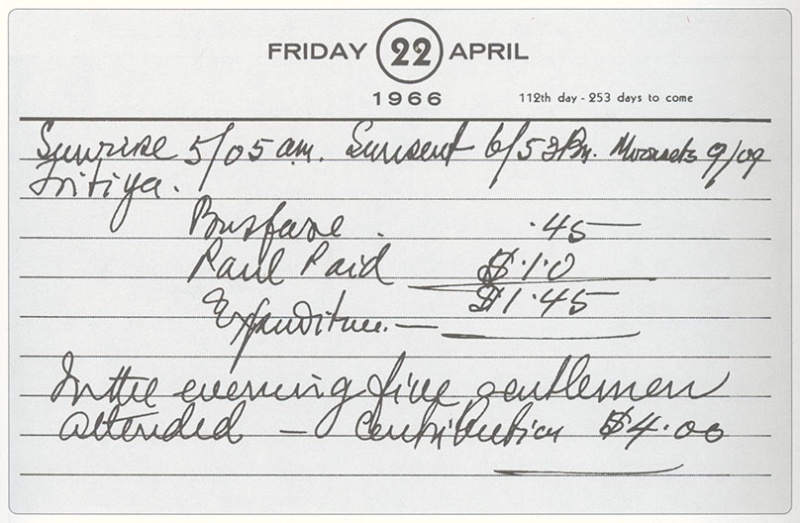 FRIDAY 22 APRIL
1966
112th day - 253 days to come
Sunrise 5/05 am. Sunsent 6/53 Pm. Moonsets 9/09
Tritiya.
Busfare . .45
Paul Paid $.1.0
Expenditure.— $1.45
In the evening five gentlemen
attended — Contribution $4.00